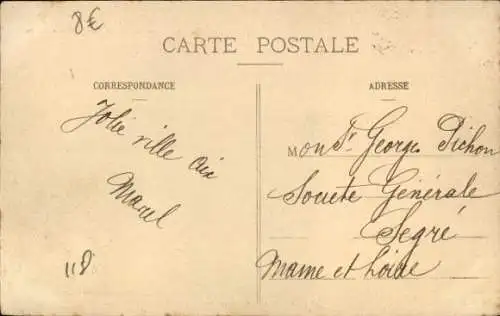 8€
CARTE POSTALE
CORRESPONDANCE
ADRESSE
Jolie ville
Marcel
Monsr. Georges Pichon
Société Générale
Segré
Maine et Loire
118